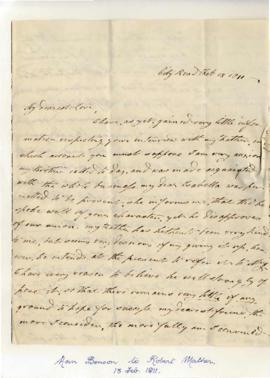 City Road Feb 13 1811
My dearest Love,
I have, as yet, gained very little infor
mation respecting your interview with my Father, on
which account you must suppose I am very anxious
my brother called to day, and was made acquainted
with the whole business my dear Isabella was per
mitted to be present, she informs me, that tho' he
spoke well of your character, yet he disapproves
of our union. my Father has hitherto been very kind
to me, but seems very desirous of my giving it up, how
ever, he intends at the present to refer it to Mr
I have every reason to believe he will strongly op
pose it, so that there remains very little if any
ground to hope for success my dearest friend, the
more I consider, the more fully am I convinced
Ann Benson to Robert Mather
13 Feb. 1811.